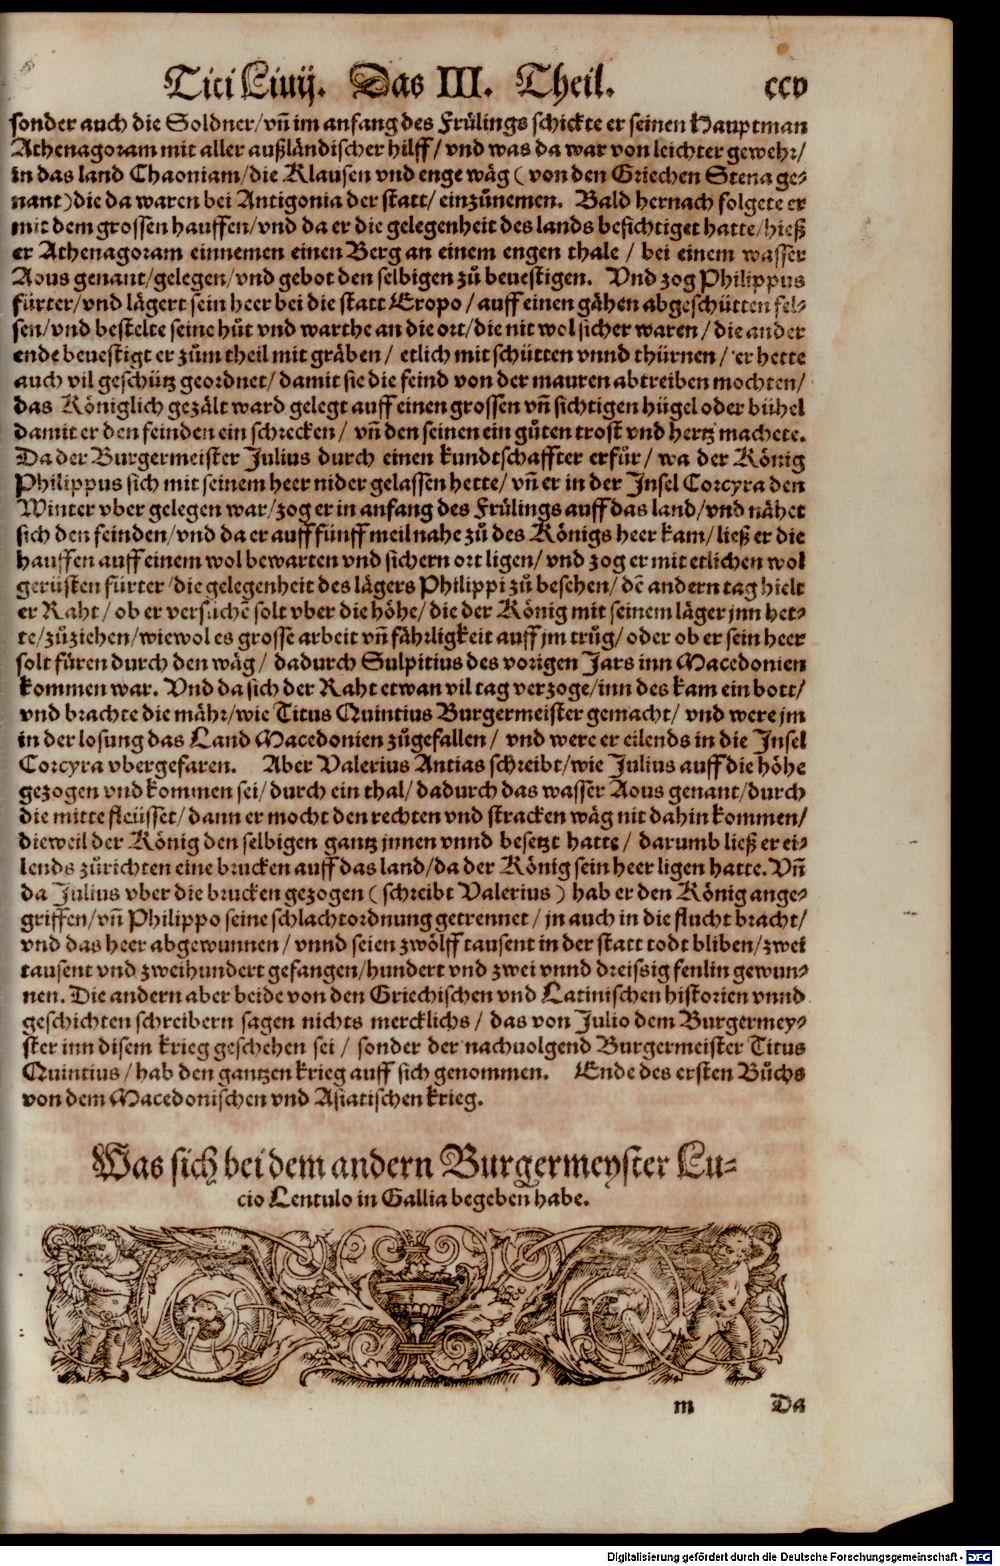 Titi Liuij. Das III. Theil. ccv
sonder auch die Soldner/vñ im anfang des Frülings schickte er seinen Hauptman
Athenagoram mit aller außländischer hilff/ vnd was da war von leichter gewehr/
in das land Chaoniam/die Klausen vnd enge wäg ( von den Griechen Stena ge⸗
nant)die da waren bei Antigonia der statt/ einzůnemen. Bald hernach folgete er
mit dem grossen hauffen/vnd da er die gelegenheit des lands besichtiget hatte/hieß
er Athenagoram einnemen einen Berg an einem engen thale / bei einem wasser
Aous genant/gelegen/vnd gebot den selbigen zů beuestigen. Vnd zog Philippus
fürter/vnd lägert sein heer bei die statt Eropo/ auff einen gähen abgeschütten fel⸗
sen/vnd bestelte seine hůt vnd warthe an die ort/die nit wol sicher waren/ die ander
ende beuestigt er zům theil mit gräben/ etlich mit schütten vnnd thürnen/ er hette
auch vil geschütz geordnet/damit sie die feind von der mauren abtreiben mochten/
das Königlich gezält ward gelegt auff einen grossen vñ sichtigen hügel oder bühel
damit er den feinden ein schrecken/ vñ den seinen ein gůten trost vnd hertz machete.
Da der Burgermeister Julius durch einen kundtschaffter erfůr/ wa der König
Philippus sich mit seinem heer nider gelassen hette/ vñ er in der Insel Corcyra den
Winter vber gelegen war/zog er in anfang des Frülings auff das land/vnd nähet
sich den feinden/vnd da er auff fünff meil nahe zů des Königs heer kam/ließ er die
hauffen auff einem wol bewarten vnd sichern ort ligen/ vnd zog er mit etlichen wol
gerüsten fürter/die gelegenheit des lägers Philippi zů besehen/dē andern tag hielt
er Raht/ ob er versůchē solt vber die höhe/die der König mit seinem läger jnn het⸗
te/zůziehen/wiewol es grosse arbeit vñ fährligkeit auff jm trůg/oder ob er sein heer
solt füren durch den wäg/ dadurch Sulpitius des vorigen Jars inn Macedonien
kommen war. Vnd da sich der Raht etwan vil tag verzoge/inn des kam ein bott/
vnd brachte die mähr/wie Titus Quintius Burgermeister gemacht/ vnd were jm
in der losung das Land Macedonien zůgefallen/ vnd were er eilends in die Insel
Corcyra vbergefaren. Aber Valerius Antias schreibt/wie Julius auff die höhe
gezogen vnd kommen sei/durch ein thal/dadurch das wasser Aous genant/durch
die mitte fleüsset/dann er mocht den rechten vnd stracken wäg nit dahin kommen/
dieweil der König den selbigen gantz jnnen vnnd besetzt hatte/ darumb ließ er ei⸗
lends zůrichten eine brucken auff das land/da der König sein heer ligen hatte. Vñ
da Julius vber die brucken gezogen ( schreibt Valerius ) hab er den König ange⸗
griffen/vñ Philippo seine schlachtordnung getrennet/jn auch in die flucht bracht/
vnd das heer abgewunnen/vnnd seien zwölff tausent in der statt todt bliben/zwei
tausent vnd zweihundert gefangen/hundert vnd zwei vnnd dreissig fenlin gewun⸗
nen. Die andern aber beide von den Griechischen vnd Latinischen historien vnnd
geschichten schreibern sagen nichts mercklichs/ das von Julio dem Burgermey⸗
ster inn disem krieg geschehen sei/ sonder der nachuolgend Burgermeister Titus
Quintius/hab den gantzen krieg auff sich genommen. Ende des ersten Bůchs
von dem Macedonischen vnd Asiatischen krieg.
Was sich bei dem andern Burgermeyster Lu⸗
cio Lentulo in Gallia begeben habe.
m Da
Digitalisierung gefördert durch die Deutsche Forschungsgemeinschaft - DFG